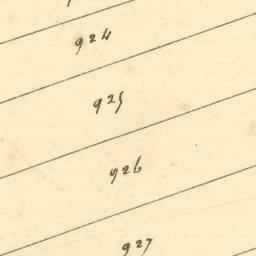 924
925
926
927